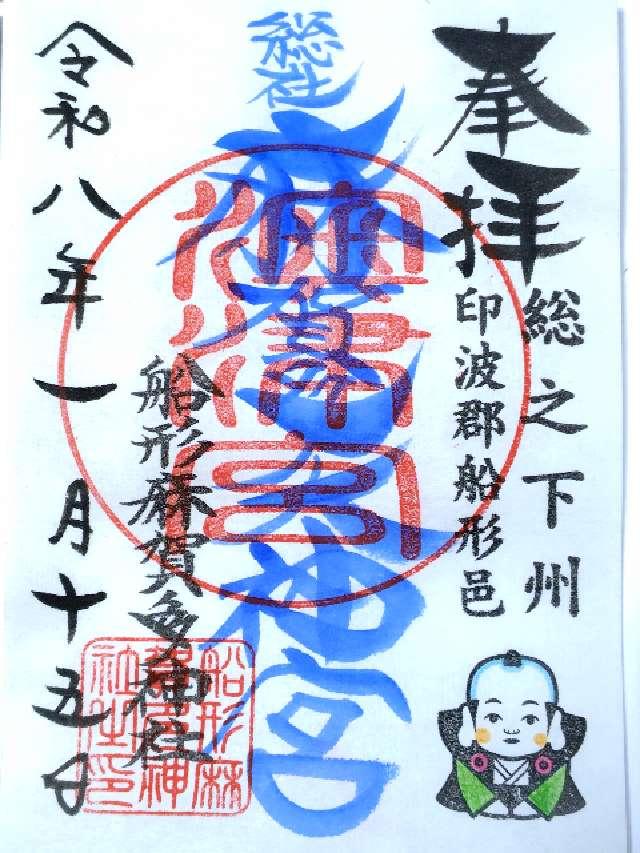 奉拝
総之下州
印波郡船形邑
総社
麻賀多大神宮
船形麻賀多神社
船形麻
賀多神
社之印
令和八年一月十五日